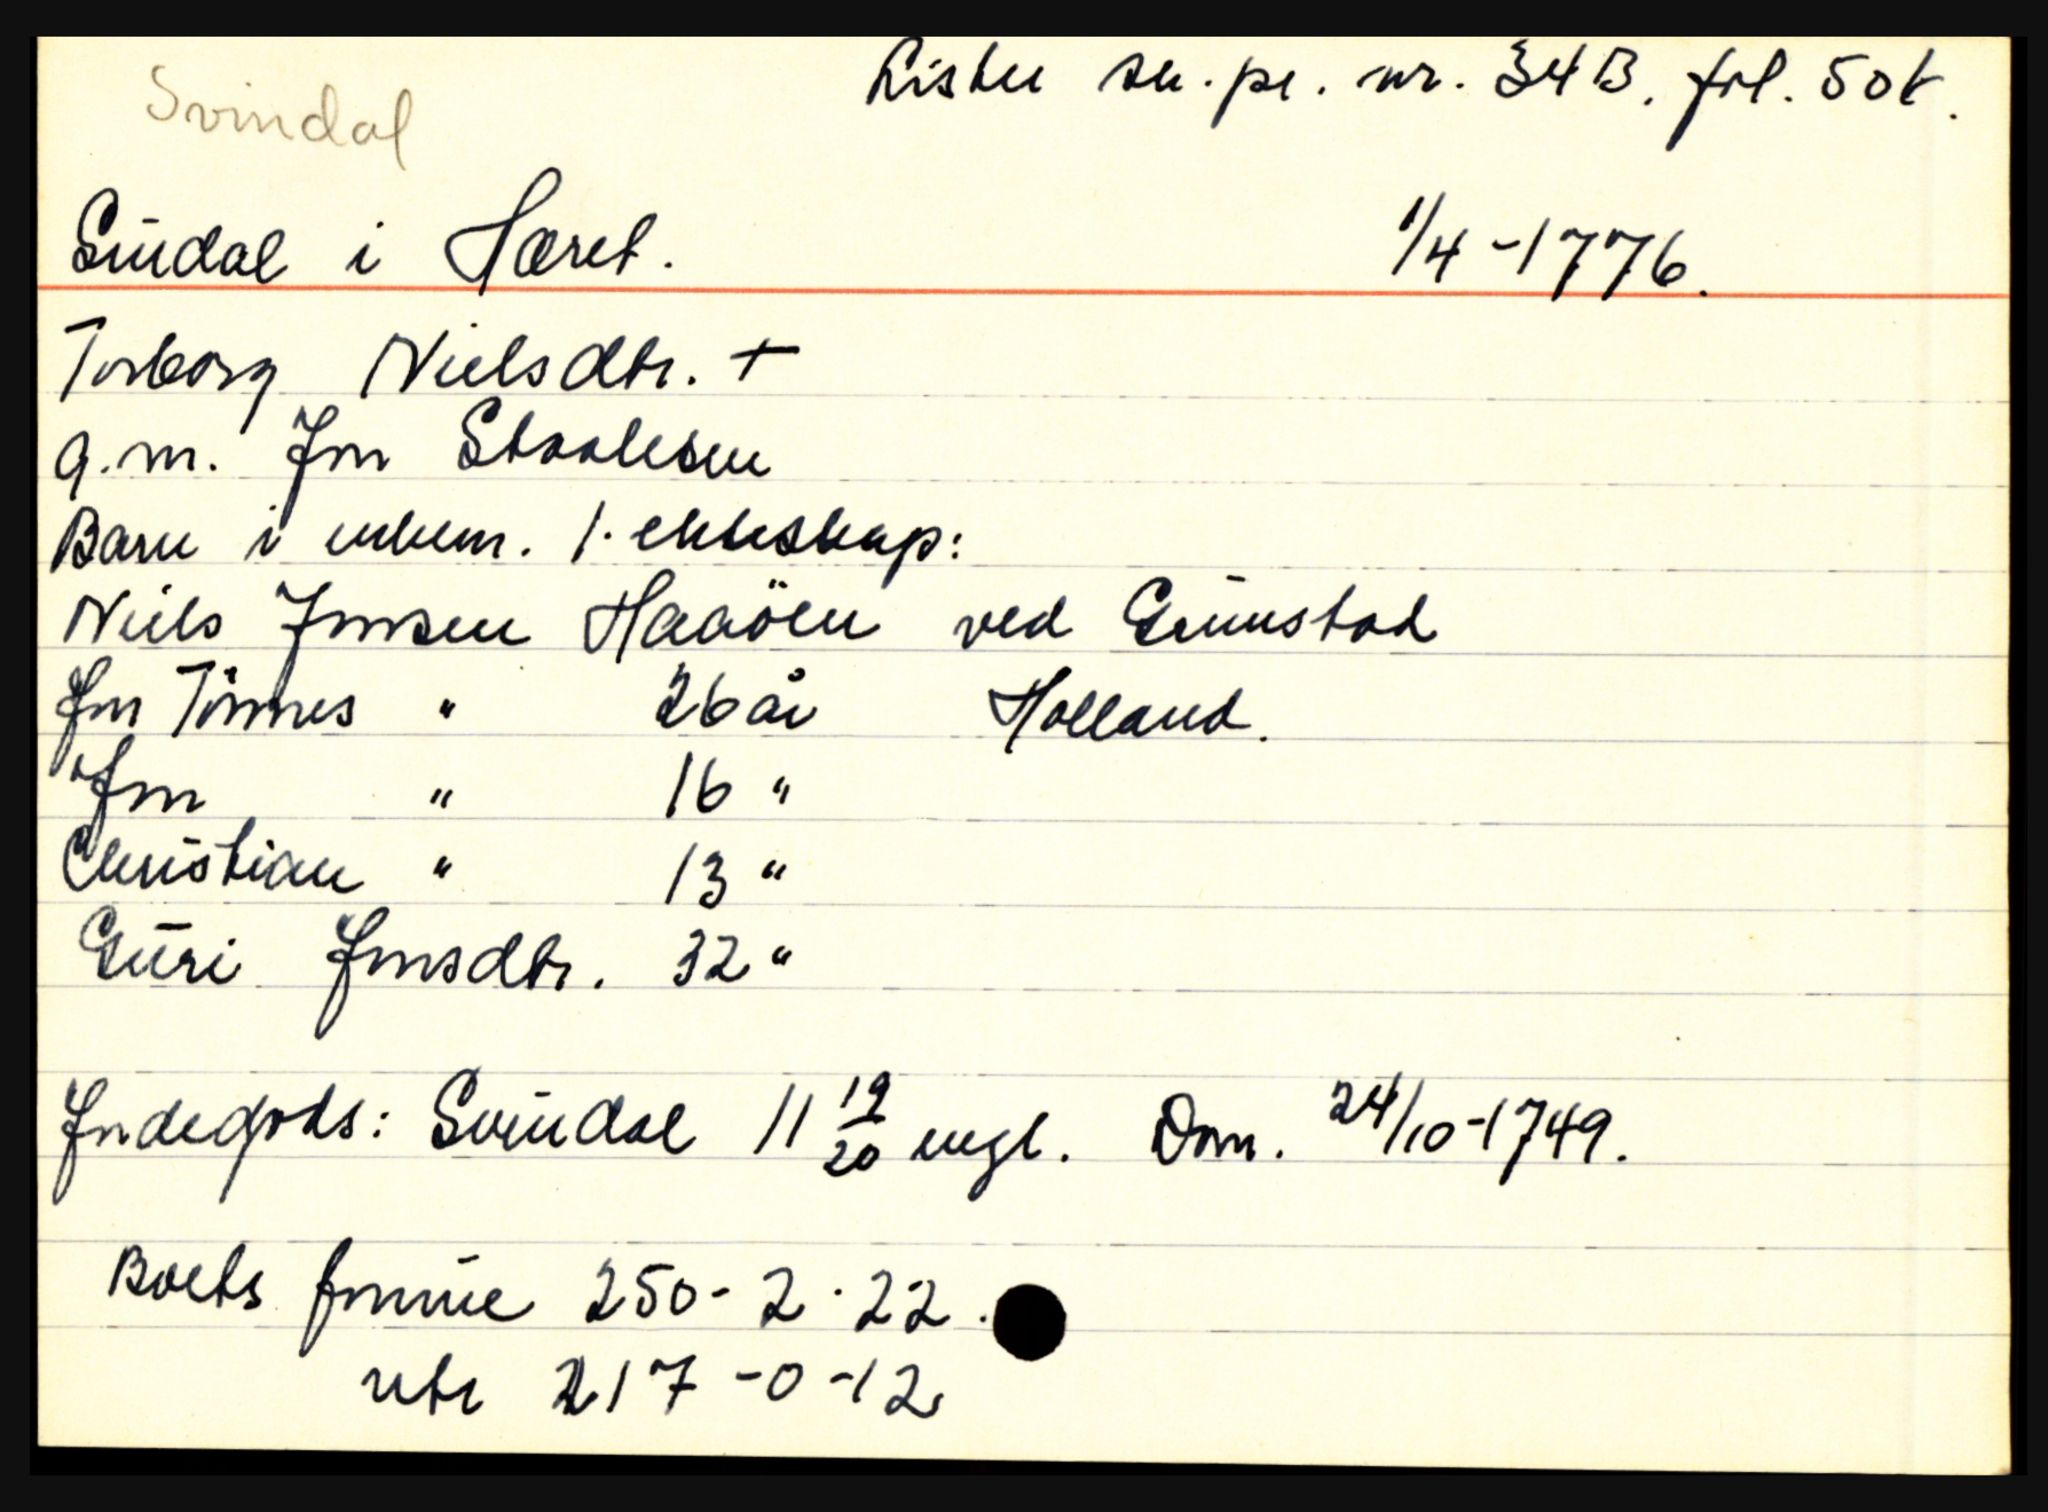 Svindal
Lister sk. pr. nr. 34B. fol. 50b.
Sindal i Hæret.
1/4 - 1776.
Torborg Nielsdtr. +
g.m. Jon Staalesen
Barn i 1. ekteskap:
Niels Jonsen Haaöen ved Grimstad
Jon Tönnes " 26 år Holland.
Jon " 16 "
Christian " 13 "
Guri Jonsdtr. 32 "
Jordegods: Svindal 11 19/20 engl. Dom. 24/10-1749.
Boets formue 250 - 2 - 22.
ntr 217 - 0 - 12